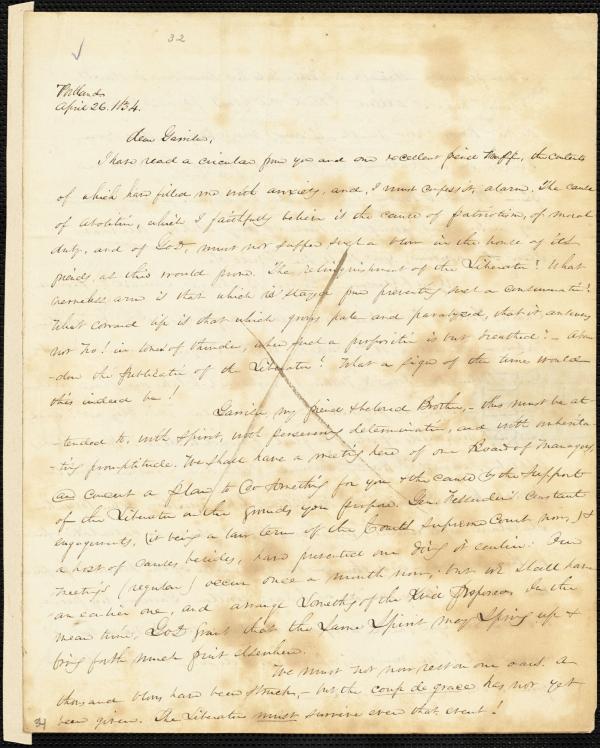 32
Portland
April 26. 1834.
dear Garrison,
I have read a circular from you and our excellent friend Knapp, the contents
of which have filled me with anxiety, and, I must confess it, alarm. The cause
of abolition, which I faithfully believe is the cause of patriotism, of moral
duty, and of God, must not suffer such a blow in the house of its
friends, as this would prove. The relinquishment of the Liberator! What
nerveless arm is that which is stayed from preventing such a consummation!
What coward lip is that which grows pale and paralyzed, that it answers
not No! in tones of thunder, when such a proposition is but breathed? - Aban
-don the publication of the Liberator! What a sign of the time would
this indeed be!
Garrison, my friend & beloved Brother, - this must be at
-tended to, with spirit, with persevering determination, and with
-ting promptitude. We shall have a meeting here of our Board of Managers,
and concert a plan to do something for you & the cause & the support
of the Liberator on the grounds you propose. Gen. Fessenden's constant
engagements, (it being a law term of the Court, supreme Court now,) &
a host of causes besides, have prevented our doing it earlier. Our
meetings (regular) occur once a month now, - but we shall have
an earlier one, and arrange something of the kind proposed. In the
mean time, God grant that the same spirit may spring up &
bring forth much fruit elsewhere.
We must not now rest on our oars. A
thousand blows have been struck, - but the coup de grace has not yet
been given. The Liberator must survive even that event!